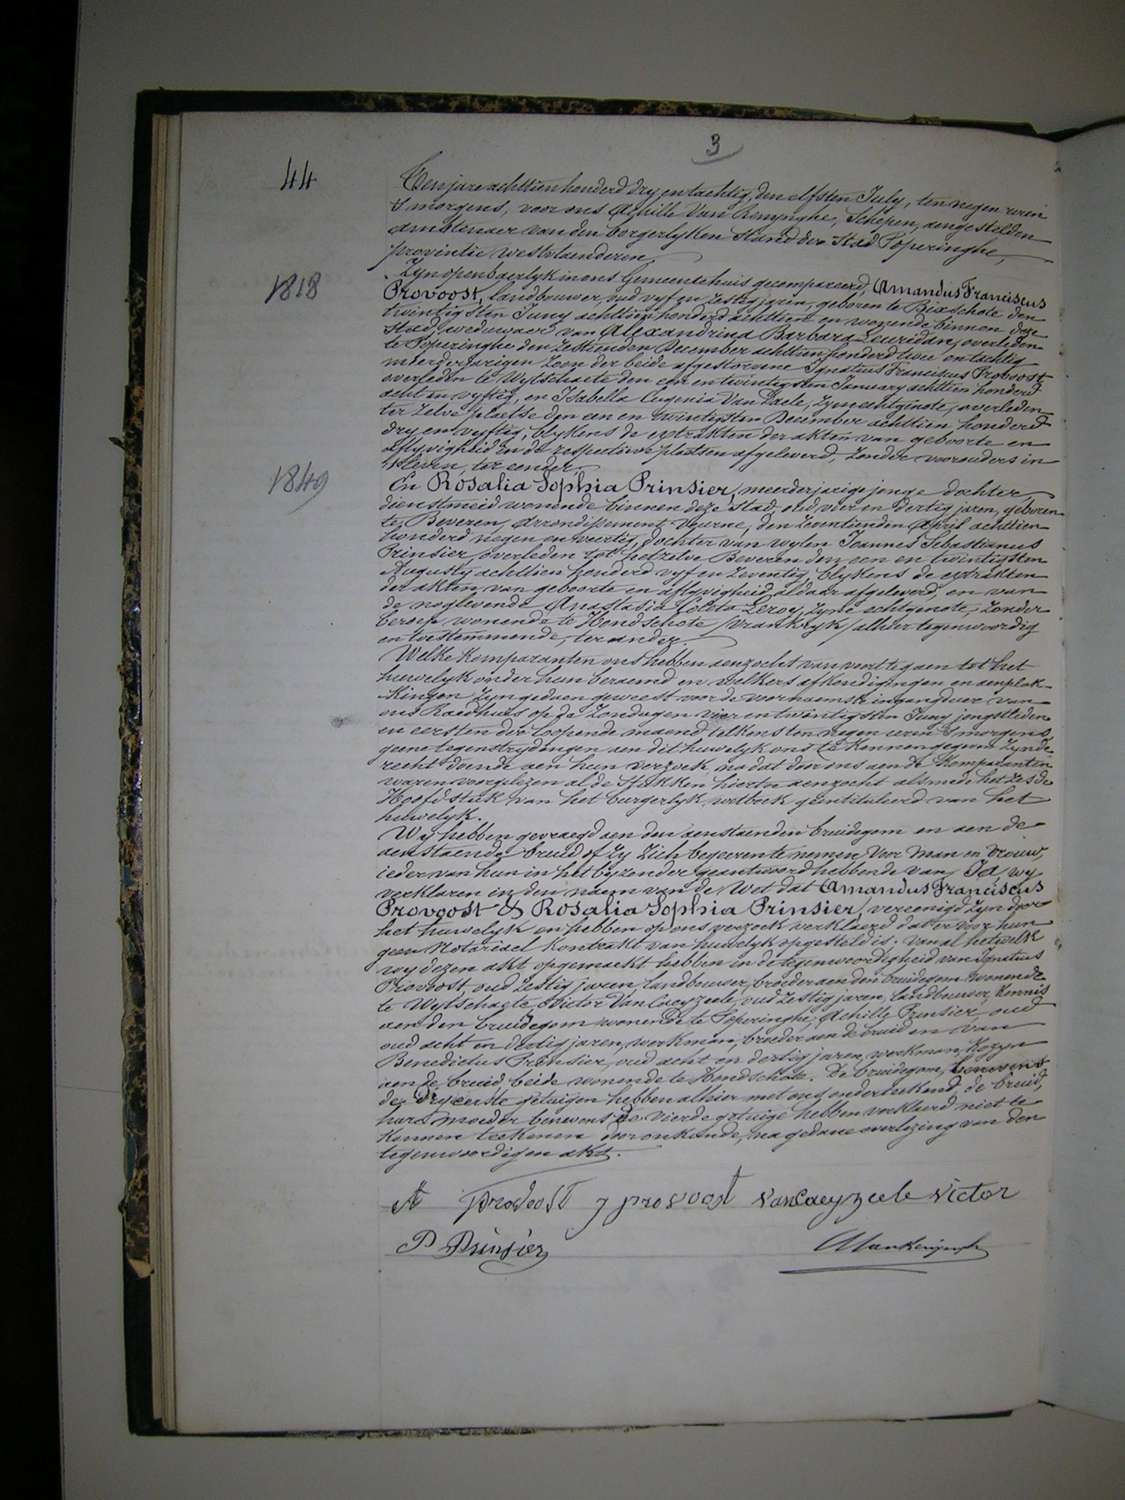 3
44
Ten jare achttien honderd dry en tachtig, den elfsten July, ten negen uren
's morgens, voor ons Achille Van Renynghe, Schepen, aengestelden
ambtenaer van den borgerlyken Stand der Stad Poperinghe,
provintie Westvlaenderen,
Zyn openbaerlyk in ons Gemeentehuis gecompareerd, Amandus Franciscus
1818
Provoost, landbouwer, oud vyf en zestig jaren, geboren te Bixschote den
twintigsten Juny achttien honderd achttien en wonende binnen deze
stad, weduwaer van Alexandrina Barbara Leuridan, overleden
te Poperinghe den zestienden December achttien honderd twee en tachtig
meerderjarigen Zoon der beide afgestorvene Ignatius Franciscus Provoost
overleden te Wytschaete den een en twintigsten January achttien honderd
acht en vyftig, en Isabella Eugenia Van Daele, zyne echtgenote, overleden
ter zelve plaetse den een en twintigsten December achttien honderd
dry en vyftig, blykens de extrakten der akten van geboorte en
aflyvigheid in de respectieve plaetsen afgeleverd, zonder voorouders in
't leven, ter eender,
1849
En Rosalia Sophia Prinsier, meerderjarige jonge dochter,
dienstmeid wonende binnen deze stad, oud vier en dertig jaren, geboren
te Beveren, Arrondissement Veurne, den zeventienden April achttien
honderd negen en veertig, dochter van wylen Joannes Sebastianus
Prinsier, overleden tot hetzelve Beveren den een en twintigsten
Augusty achttien honderd vyf en zeventig, blykens de extrakten
der akten van geboorte en aflyvigheid aldaer afgeleverd, en van
de noglevende Anastasia Coleta Leroy, zyne echtgenote, zonder
beroep wonende te Hondschote /Vrankryk/ alhier tegenwoordig
en toestemmende, ter ander.
Welke komparanten ons hebben aenzocht van voort te gaen tot het
huwelyk onder hun beraemd en welkers afkondigingen en aenplak-
kingen zyn gedaen geweest voor de voornaemste ingangdeur van
ons Raedhuis op de Zondagen vier en twintigsten Juny jongstleden
en eersten der loopende maend telkens ten negen uren 's morgens,
geene tegenstrydingen aen dit huwelyk ons te kennen gegeven zynde
recht doende aen hun verzoek, na dat door ons aen de komparanten
waren voorgelezen al de stukken hiertoe aenzocht alsmede het zesde
Hoofdstuk van het burgerlyk wetboek geintituleerd van het
huwelyk.
Wy hebben gevraegd aen den aenstaenden bruidegom en aen de
aenstaende bruid of zy zich begeeren te nemen voor Man en Vrouw,
ieder van hun in het byzonder geantwoord hebbende van Ja, wy
verklaren in den naem van de Wet dat Amandus Franciscus
Provoost & Rosalia Sophia Prinsier, vereenigd zyn door
het huwelyk en hebben op ons verzoek verklaerd dat er voor hun
geen Notarieel kontrakt van huwelyk opgesteld is. Van al hetwelk
wy dezen akt opgemaekt hebben in de tegenwoordigheid van Ignatius
Provoost, oud zestig jaren, landbouwer, broeder aen den bruidegom wonende
te Wytschaete, Victor Van Caeyzeele, oud zestig jaren, landbouwer, kennis
aen den bruidegom wonende te Poperinghe, Achille Prinsier, oud
oud acht en dertig jaren, werkman, broeder aen de bruid en van
Benedictus Prinsier, oud acht en dertig jaren, werkman, kozyn
aen de bruid, beide wonende te Hondschote. De bruidegom, benevens
de dry eerste getuigen hebben alhier met ons onderteekend, de bruid,
hare moeder benevens de vierde getuige hebben verklaerd niet te
kunnen teekenen door onkunde, na gedane overlezing van den
tegenwoordigen akt.
A Provoost J provoost VanCaeyzeele Victor
P Prinsier AVanRenynghe